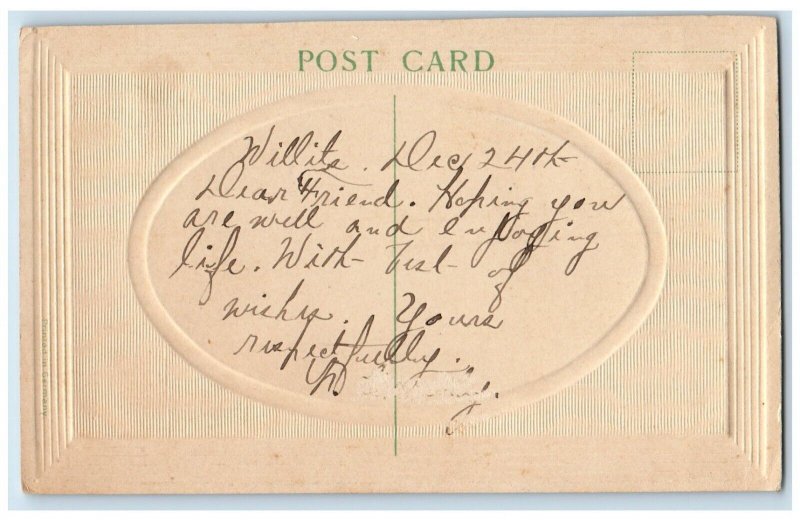 POST CARD
Willits. Dec 24th
Dear Friend. Hoping you
are well and enjoying
life. With Best of
wishes. Yours
respectfully.
Printed in Germany